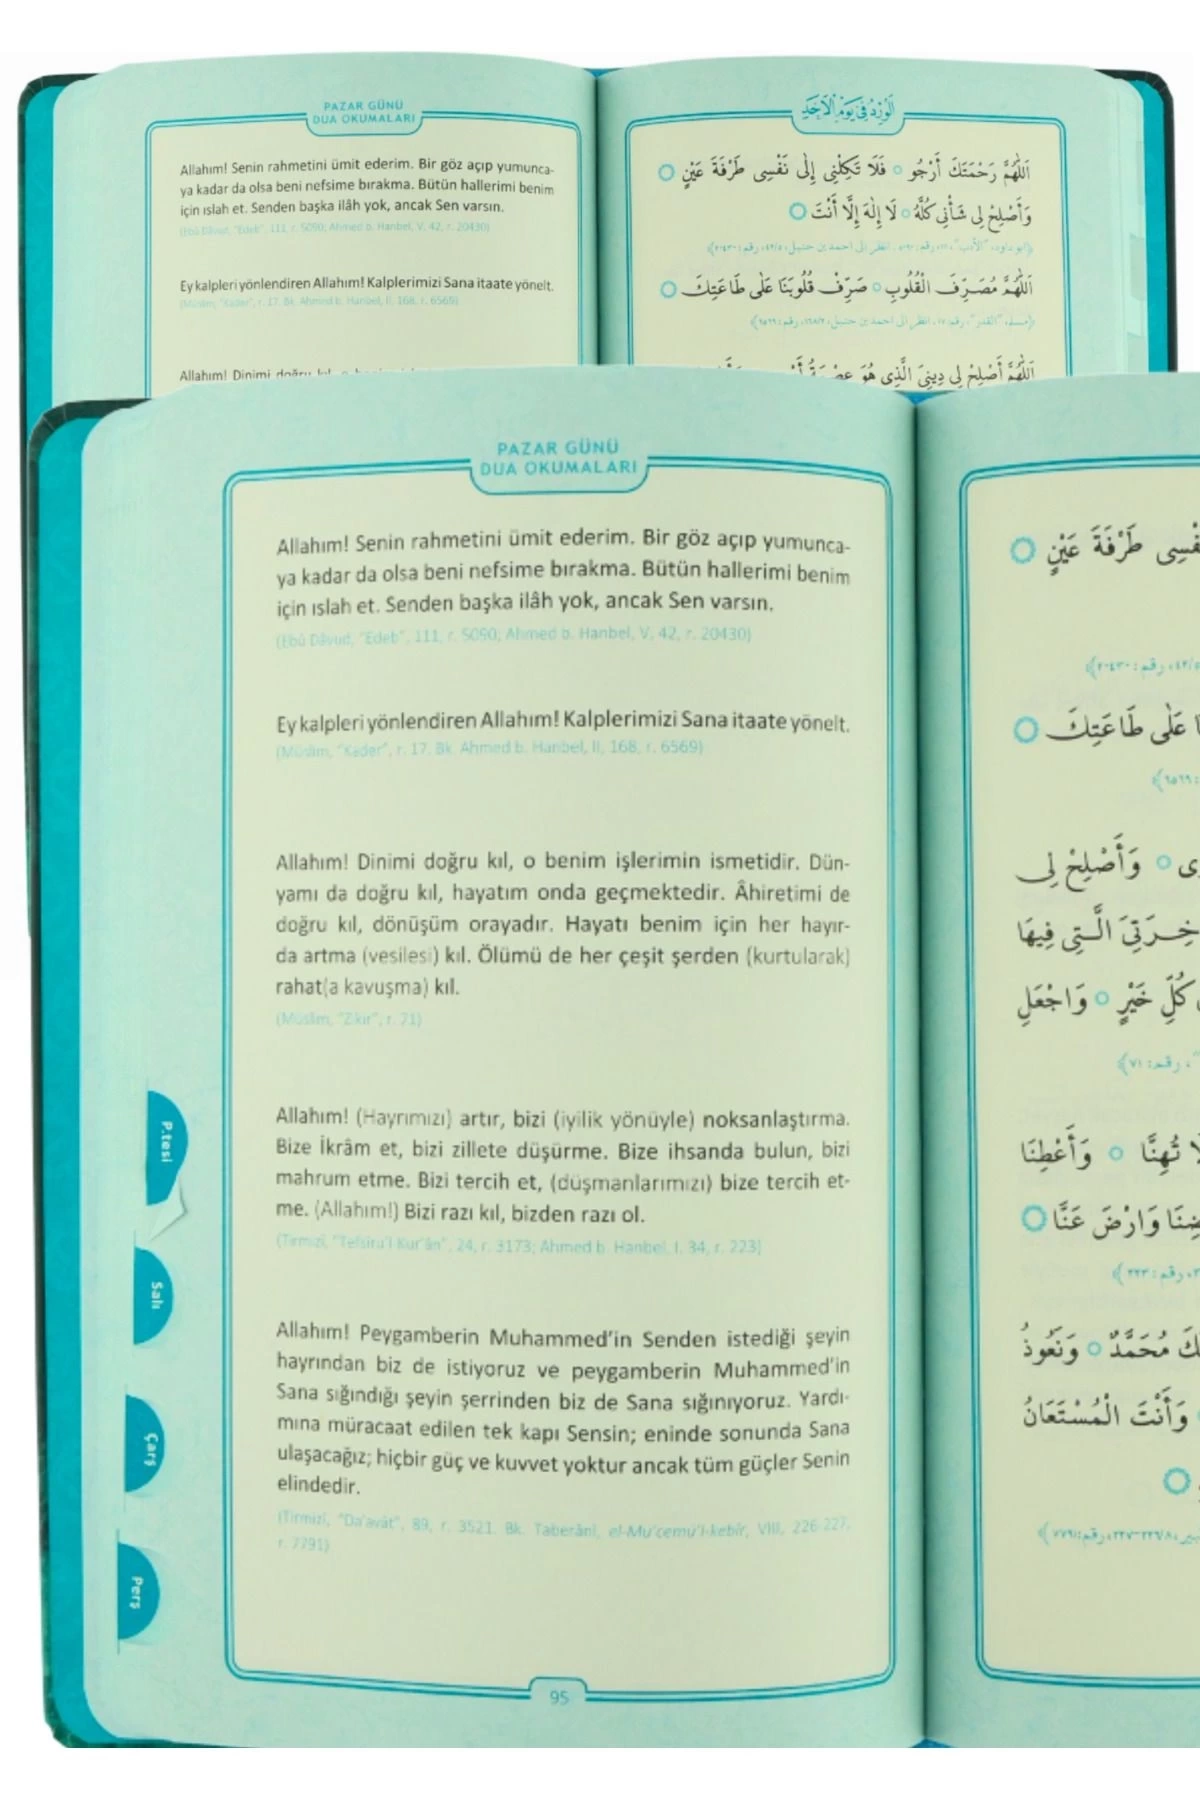 PAZAR GÜNÜ
DUA OKUMALARI
Allahım! Senin rahmetini ümit ederim. Bir göz açıp yumunca-
ya kadar da olsa beni nefsime bırakma. Bütün hallerimi benim
için ıslah et. Senden başka ilâh yok, ancak Sen varsın.
(Ebû Dâvud, "Edeb", 111, r. 5090; Ahmed b. Hanbel, V. 42, r. 20430)
Ey kalpleri yönlendiren Allahım! Kalplerimizi Sana itaate yönelt.
(Müslim, "Kader", r. 17. Bk. Ahmed b. Hanbel, II, 168, r. 6569)
Allahım! Dinimi doğru kıl, o
اَلْوِرْدُ فِي يَوْمِ الْاَحَدِ
اَللّٰهُمَّ رَحْمَتَكَ أَرْجُو فَلَا تَكِلْنِى إِلٰى نَفْسِى طَرْفَةَ عَيْنٍ
وَأَصْلِحْ لِى شَأْنِى كُلَّهُ لَا إِلٰهَ إِلَّا أَنْتَ
اَللّٰهُمَّ مُصَرِّفَ الْقُلُوبِ صَرِّفْ قُلُوبَنَا عَلٰى طَاعَتِكَ
اَللّٰهُمَّ أَصْلِحْ لِى دِينِىَ الَّذِى هُوَ عِصْمَةُ
PAZAR GÜNÜ
DUA OKUMALARI
Allahım! Senin rahmetini ümit ederim. Bir göz açıp yumunca-
ya kadar da olsa beni nefsime bırakma. Bütün hallerimi benim
için ıslah et. Senden başka ilâh yok, ancak Sen varsın.
(Ebû Dâvud, "Edeb", 111, r. 5090; Ahmed b. Hanbel, V. 42, r. 20430)
Ey kalpleri yönlendiren Allahım! Kalplerimizi Sana itaate yönelt.
(Müslim, "Kader", r. 17. Bk. Ahmed b. Hanbel, II, 168, r. 6569)
Allahım! Dinimi doğru kıl, o benim işlerimin ismetidir. Dün-
yamı da doğru kıl, hayatım onda geçmektedir. Âhiretimi de
doğru kıl, dönüşüm orayadır. Hayatı benim için her hayır-
da artma (vesilesi) kıl. Ölümü de her çeşit şerden (kurtularak)
rahat(a kavuşma) kıl.
(Müslim, "Zikir", r. 71)
Allahım! (Hayrımızı) artır, bizi (iyilik yönüyle) noksanlaştırma.
Bize İkrâm et, bizi zillete düşürme. Bize ihsanda bulun, bizi
mahrum etme. Bizi tercih et, (düşmanlarımızı) bize tercih et-
me. (Allahım!) Bizi razı kıl, bizden razı ol.
(Tirmizî, "Tefsîru'l Kur'ân", 24, r. 3173; Ahmed b. Hanbel, I. 34, r. 223)
Allahım! Peygamberin Muhammed'in Senden istediği şeyin
hayrından biz de istiyoruz ve peygamberin Muhammed'in
Sana sığındığı şeyin şerrinden biz de Sana sığınıyoruz. Yardı-
mına müracaat edilen tek kapı Sensin; eninde sonunda Sana
ulaşacağız; hiçbir güç ve kuvvet yoktur ancak tüm güçler Senin
elindedir.
(Tirmizî, "Da'avât", 89, r. 3521. Bk. Taberânî, el-Mu'cemü'l-kebîr, VIII, 226-227,
r. 7791)
95
P.tesi
Salı
Çarş
Perş
طَرْفَةَ عَيْنٍ
عَلٰى طَاعَتِكَ
وَأَصْلِحْ لِى
الَّتِى فِيهَا
كُلِّ خَيْرٍ وَاجْعَلِ
تُهِنَّا وَأَعْطِنَا
وَارْضَ عَنَّا
مُحَمَّدٌ وَنَعُوذُ
وَأَنْتَ الْمُسْتَعَانُ